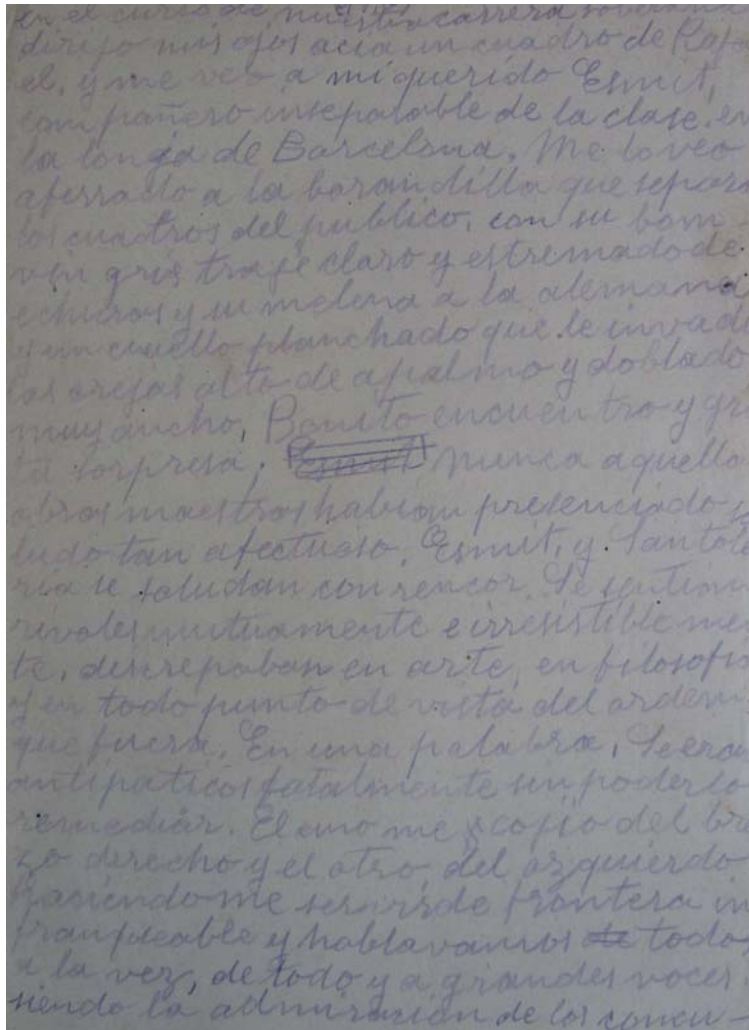 en el curso de nuestra carrera
dirijo mis ojos acia un cuadro de Rafa
el, y me veo a mi querido Esmit,
compañero inseparable de la clase, en
la longa de Barcelona. Me lo veo
aferrado a la barandilla que separa
los cuadros del publico, con su bom-
vin gris traje claro y estremado de
echuras y su melena a la alemana
y un cuello planchado que le invad
las orejas alto de apalmo y doblado
muy ancho, Bonito encuentro y gra
ta sorpresa, Esmit nunca aquella
obras maestras habian presenciado
ludo tan afectuoso. Esmit, y Santole
ria se saludan con rencor. Se sentian
rivales mutuamente e irresistible men
te, discrepaban en arte, en filosofia
y en todo punto de vista del orden
que fuera. En una palabra, Se eran
antipaticos fatalmente sin poderlo
remediar. El uno me cojio del bra
zo derecho y el otro del izquierdo
haciendome servir de frontera in
franqueable y hablavamos de todos
a la vez, de todo y a grandes voces
siendo la admiración de los concu-